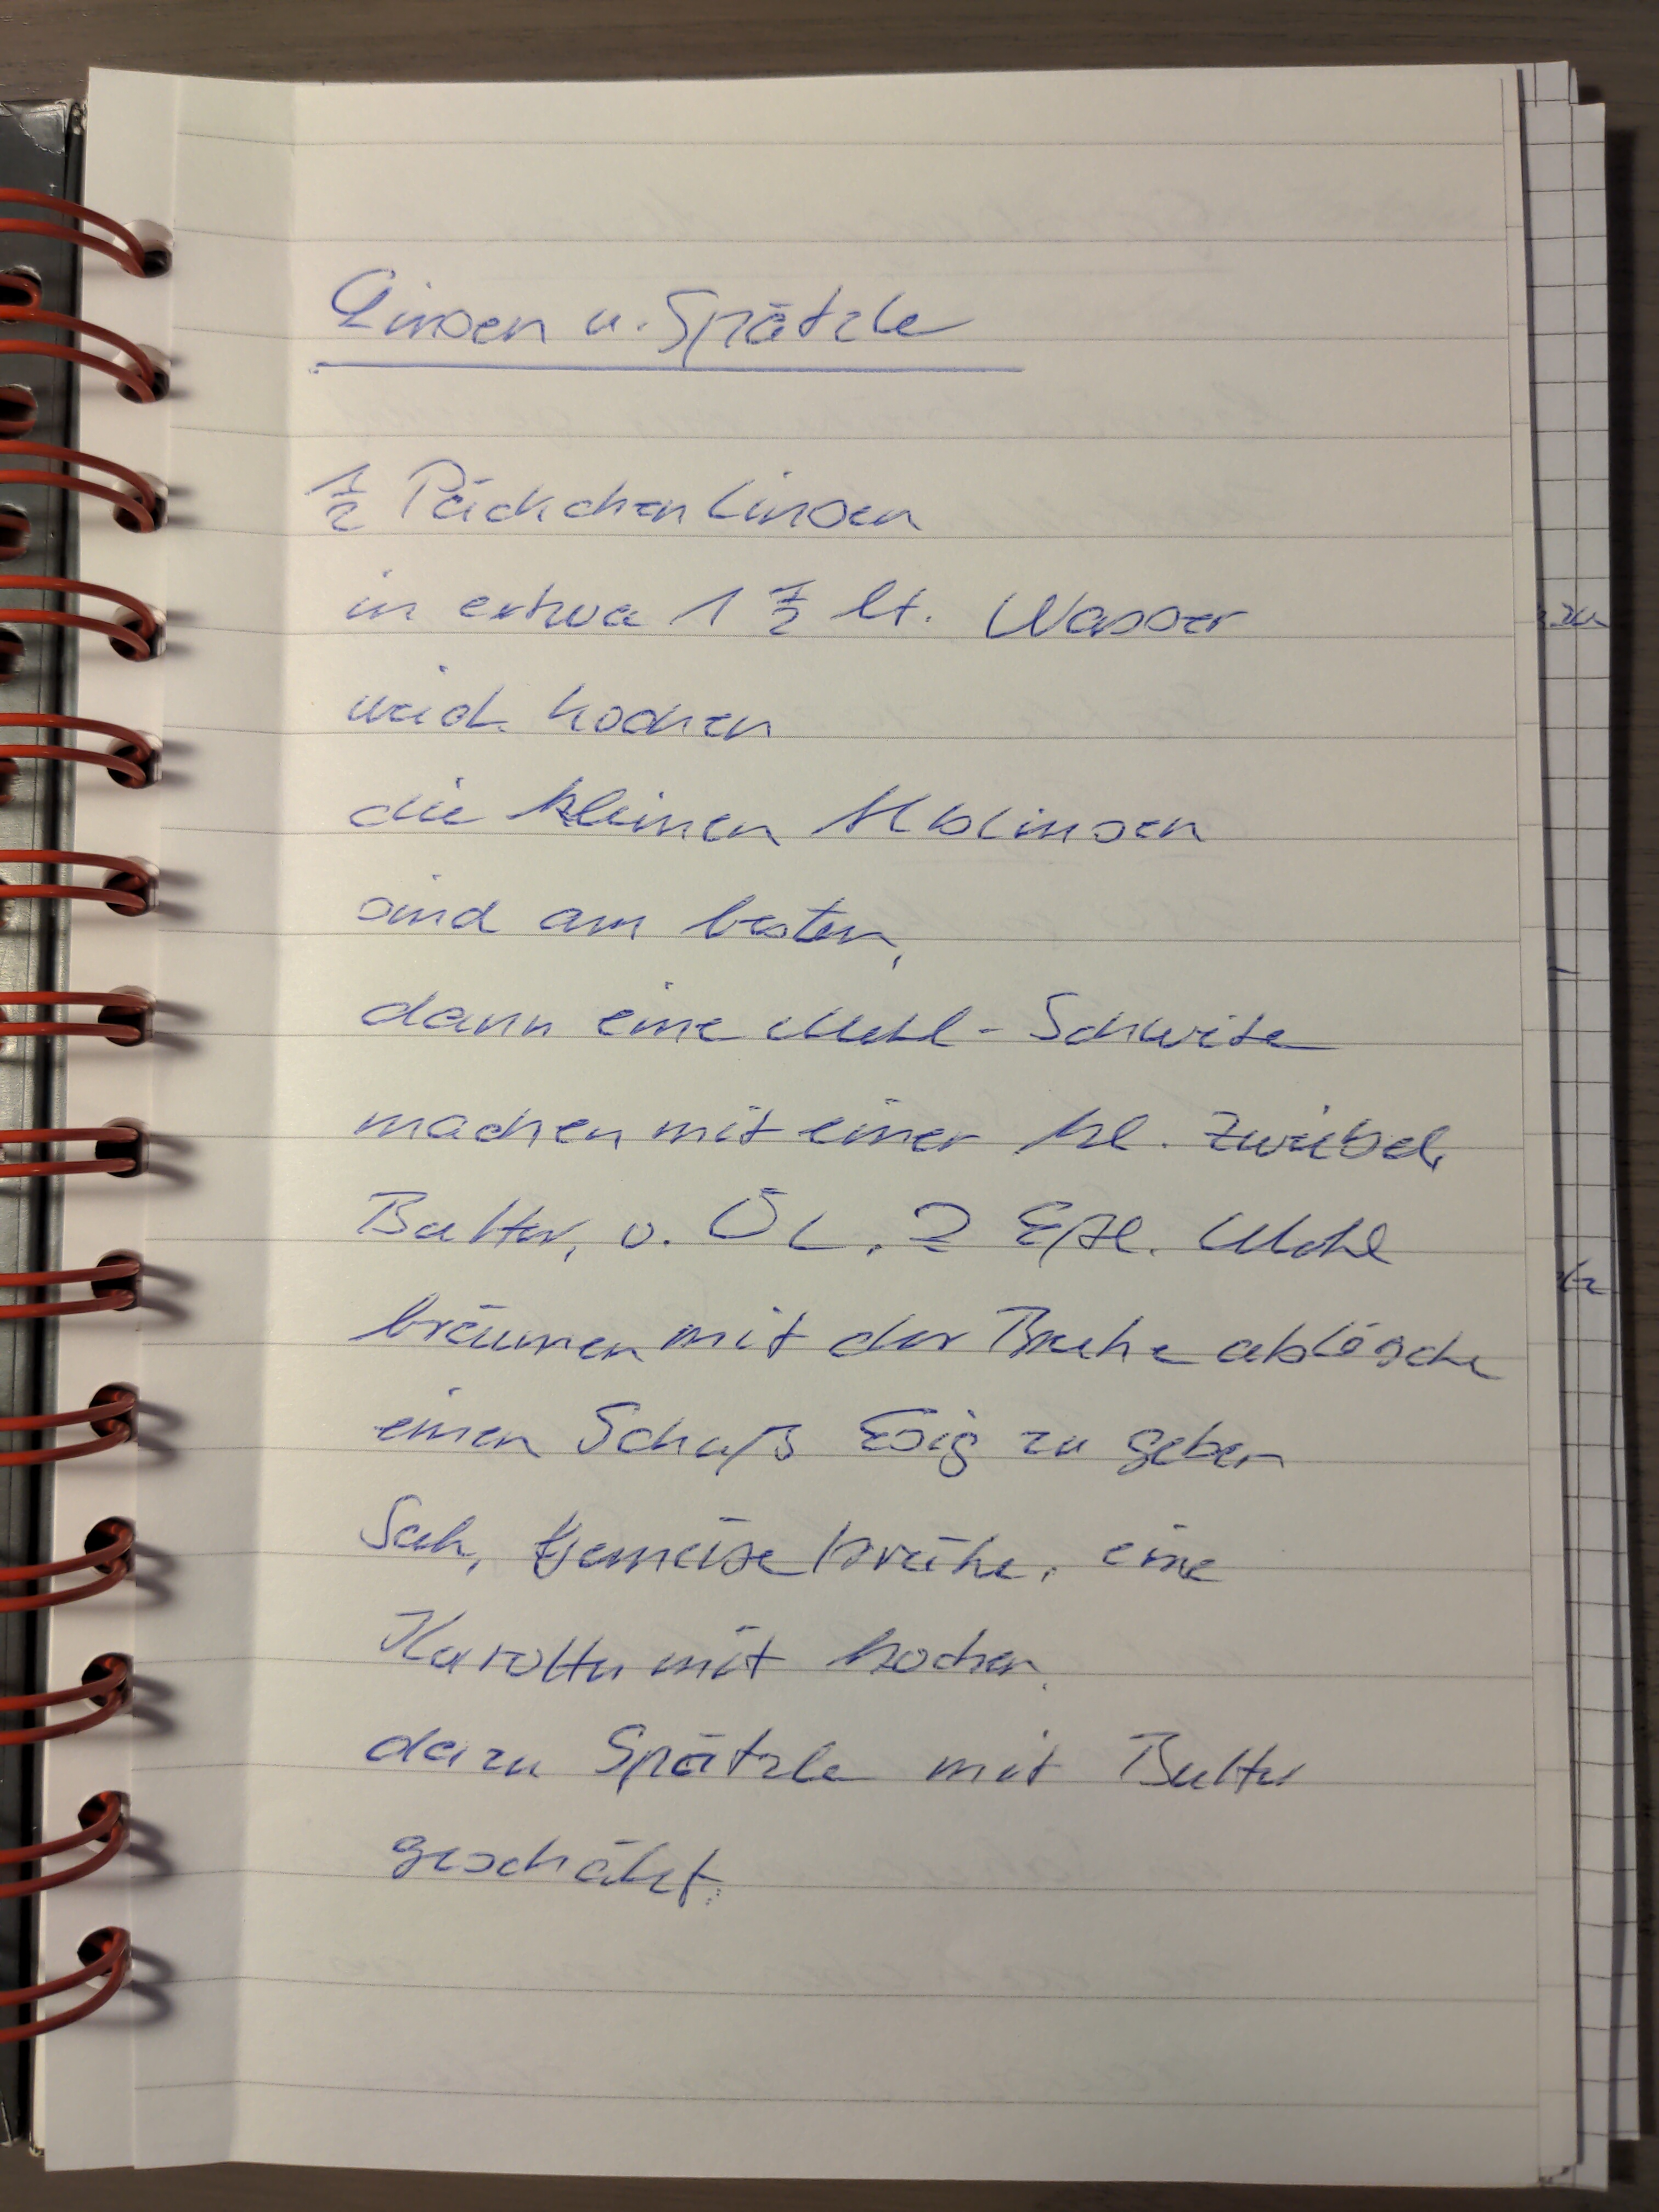 Linsen u. Spätzle
½ Päckchen Linsen
in etwa 1 ½ lt. Wasser
weich kochen
die kleinen Alblinsen
sind am besten,
dann eine Mehl-Schwite
machen mit einer kl. Zwiebel,
Butter, o. ÖL. 2 Eßl. Mehl
bräunen mit der Brühe ablösche
einen Schuß Esig zu geben
Salz, Gemüse brühe, eine
Karotte mit kochen.
dazu Spätzle mit Butter